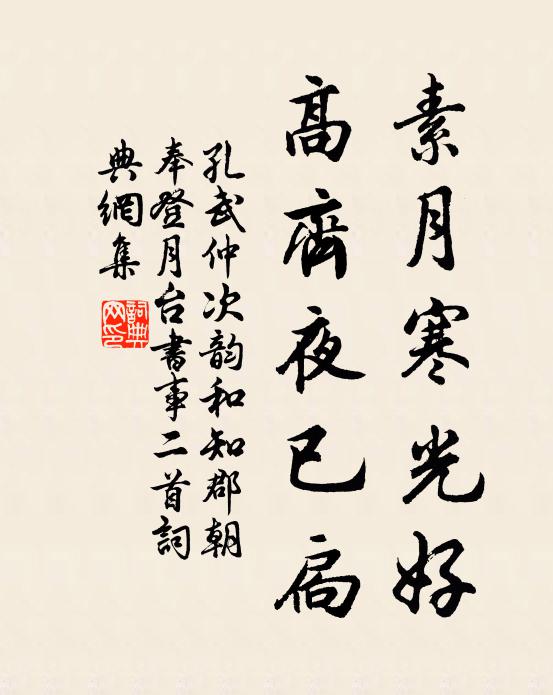 素月寒光好
高齋夜已扃
孔武仲次韵和知郡朝
奉登月台書事二首詞
典網集
詞典網印